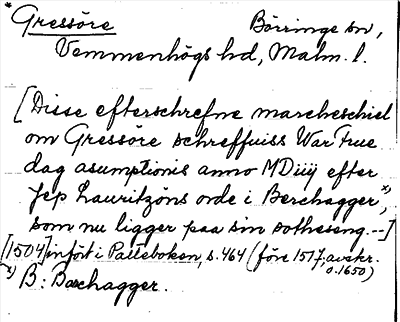 * Gressöre Börringe sn,
Vemmenhögs hd, Malm. l.
[Disse efterschrefne marcheschiel
om Gressöre schreffuiss War Frue
dag asumptionis anno MDiiij efter
Jep Lauritzöns orde i Berchagger x),
som nu ligger paa sin sotheseng. --]
[1504] infört i Palleboken, s. 464 (före 1517, avskr.
o. 1650)
x) B: Barchagger.